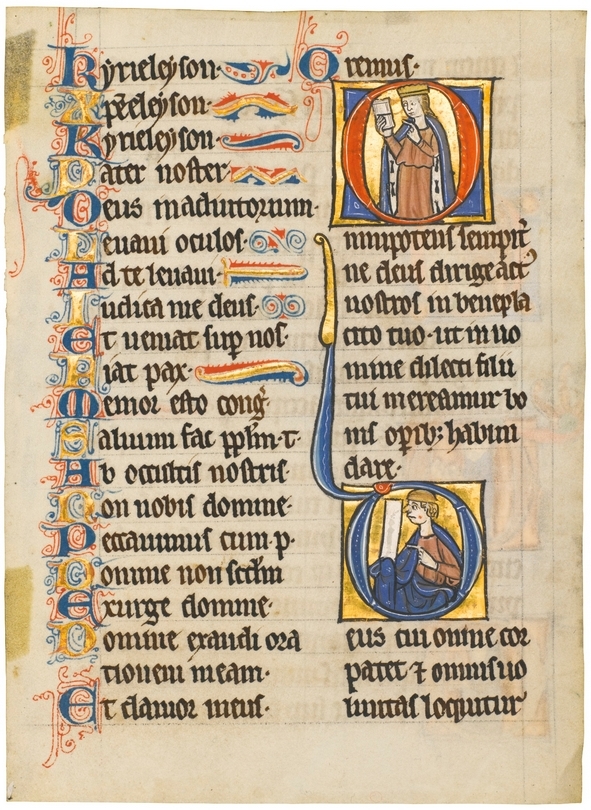 Kyrieleyson·
Xp̄eeleyson·
Kyrieleyson·
Pater noster·
Deus in adiutorium·
Leuaui oculos·
Ad te leuaui·
Iudica me deus·
Et ueniat sup nos·
Fiat pax·
Memor esto cong̃·
Saluum fac pplm̄·t·
Ab occultis nostris·
Con uobis domine·
Peccauimus cum p·
Domine non scdm̄
Exurge domine·
Domine exaudi ora
tionem meam·
Et clamor meus·
Oremus·
Omnipotens sempit̃
ne deus dirige act᷒
nostros in benepla
cito tuo·ut in no
mine dilecti filii
tui mereamur bo
nis opib; habun
dare·
Deus cui omne cor
patet ⁊ omnis uo
luntas loquitur